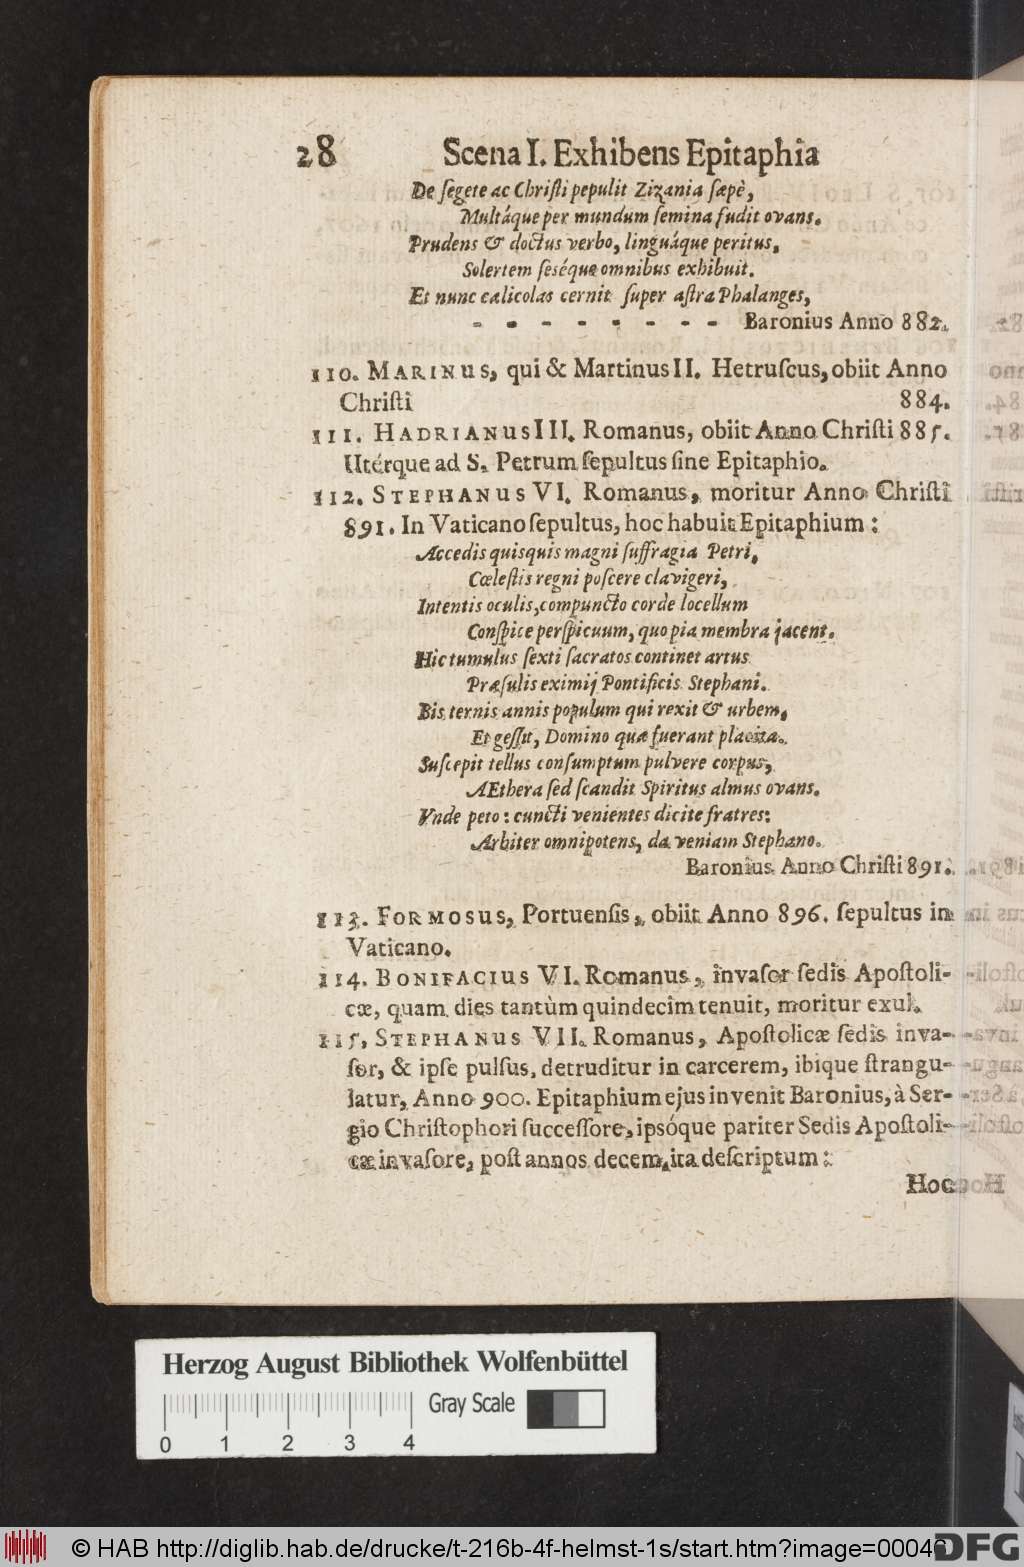 28 Scena I. Exhibens Epitaphia
De segete ac Christi pepulit Zizania sæpè,
Multáque per mundum semina fudit ovans.
Prudens & doctus verbo, linguáque peritus,
Solertem seséque omnibus exhibuit.
Et nunc cælicolas cernit super astra Phalanges,
- - - - - - - - Baronius Anno 882.
110. MARINUS, qui & Martinus II. Hetruscus, obiit Anno
Christi 884.
111. HADRIANUS III. Romanus, obiit Anno Christi 885.
Utérque ad S. Petrum sepultus sine Epitaphio.
112. STEPHANUS VI. Romanus, moritur Anno Christi
891. In Vaticano sepultus, hoc habuit Epitaphium:
Accedis quisquis magni suffragia Petri,
Cœlestis regni poscere clavigeri,
Intentis oculis, compuncto corde locellum
Conspice perspicuum, quo pia membra jacent.
Hic tumulus sexti sacratos continet artus
Præsulis eximij Pontificis Stephani.
Bis ternis annis populum qui rexit & urbem,
Et gessit, Domino quæ fuerant placita.
Suscepit tellus consumptum pulvere corpus,
AEthera sed scandit Spiritus almus ovans.
Vnde peto: cuncti venientes dicite fratres:
Arbiter omnipotens, da veniam Stephano.
Baronius Anno Christi 891.
113. FORMOSUS, Portuensis, obiit Anno 896. sepultus in
Vaticano.
114. BONIFACIUS VI. Romanus, invasor sedis Apostoli-
cæ, quam dies tantùm quindecim tenuit, moritur exul.
115. STEPHANUS VII. Romanus, Apostolicæ sedis inva-
sor, & ipse pulsus, detruditur in carcerem, ibique strangu-
latur, Anno 900. Epitaphium ejus invenit Baronius, à Ser-
gio Christophori successore, ipsóque pariter Sedis Apostoli-
cæ invasore, post annos decem, ita descriptum:
Hoc
Herzog August Bibliothek Wolfenbüttel
Gray Scale
0 1 2 3 4
© HAB http://diglib.hab.de/drucke/t-216b-4f-helmst-1s/start.htm?image=00046
DFG